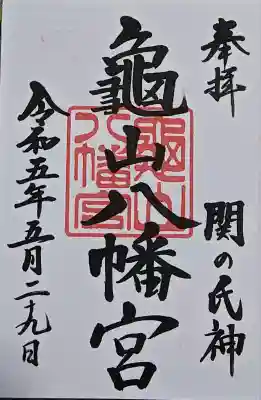 奉拝
関の氏神
龜山八幡宮
令和五年五月二十九日
龜山八幡宮